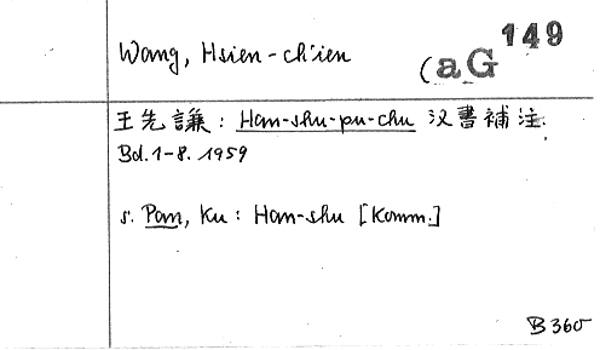 Wang, Hsien-ch'ien
(aG 149
王先謙: Han-shu-pu-chu 汉書補注.
Bd. 1-8. 1959
s. Pan, Ku: Han-shu [Komm.]
B 360